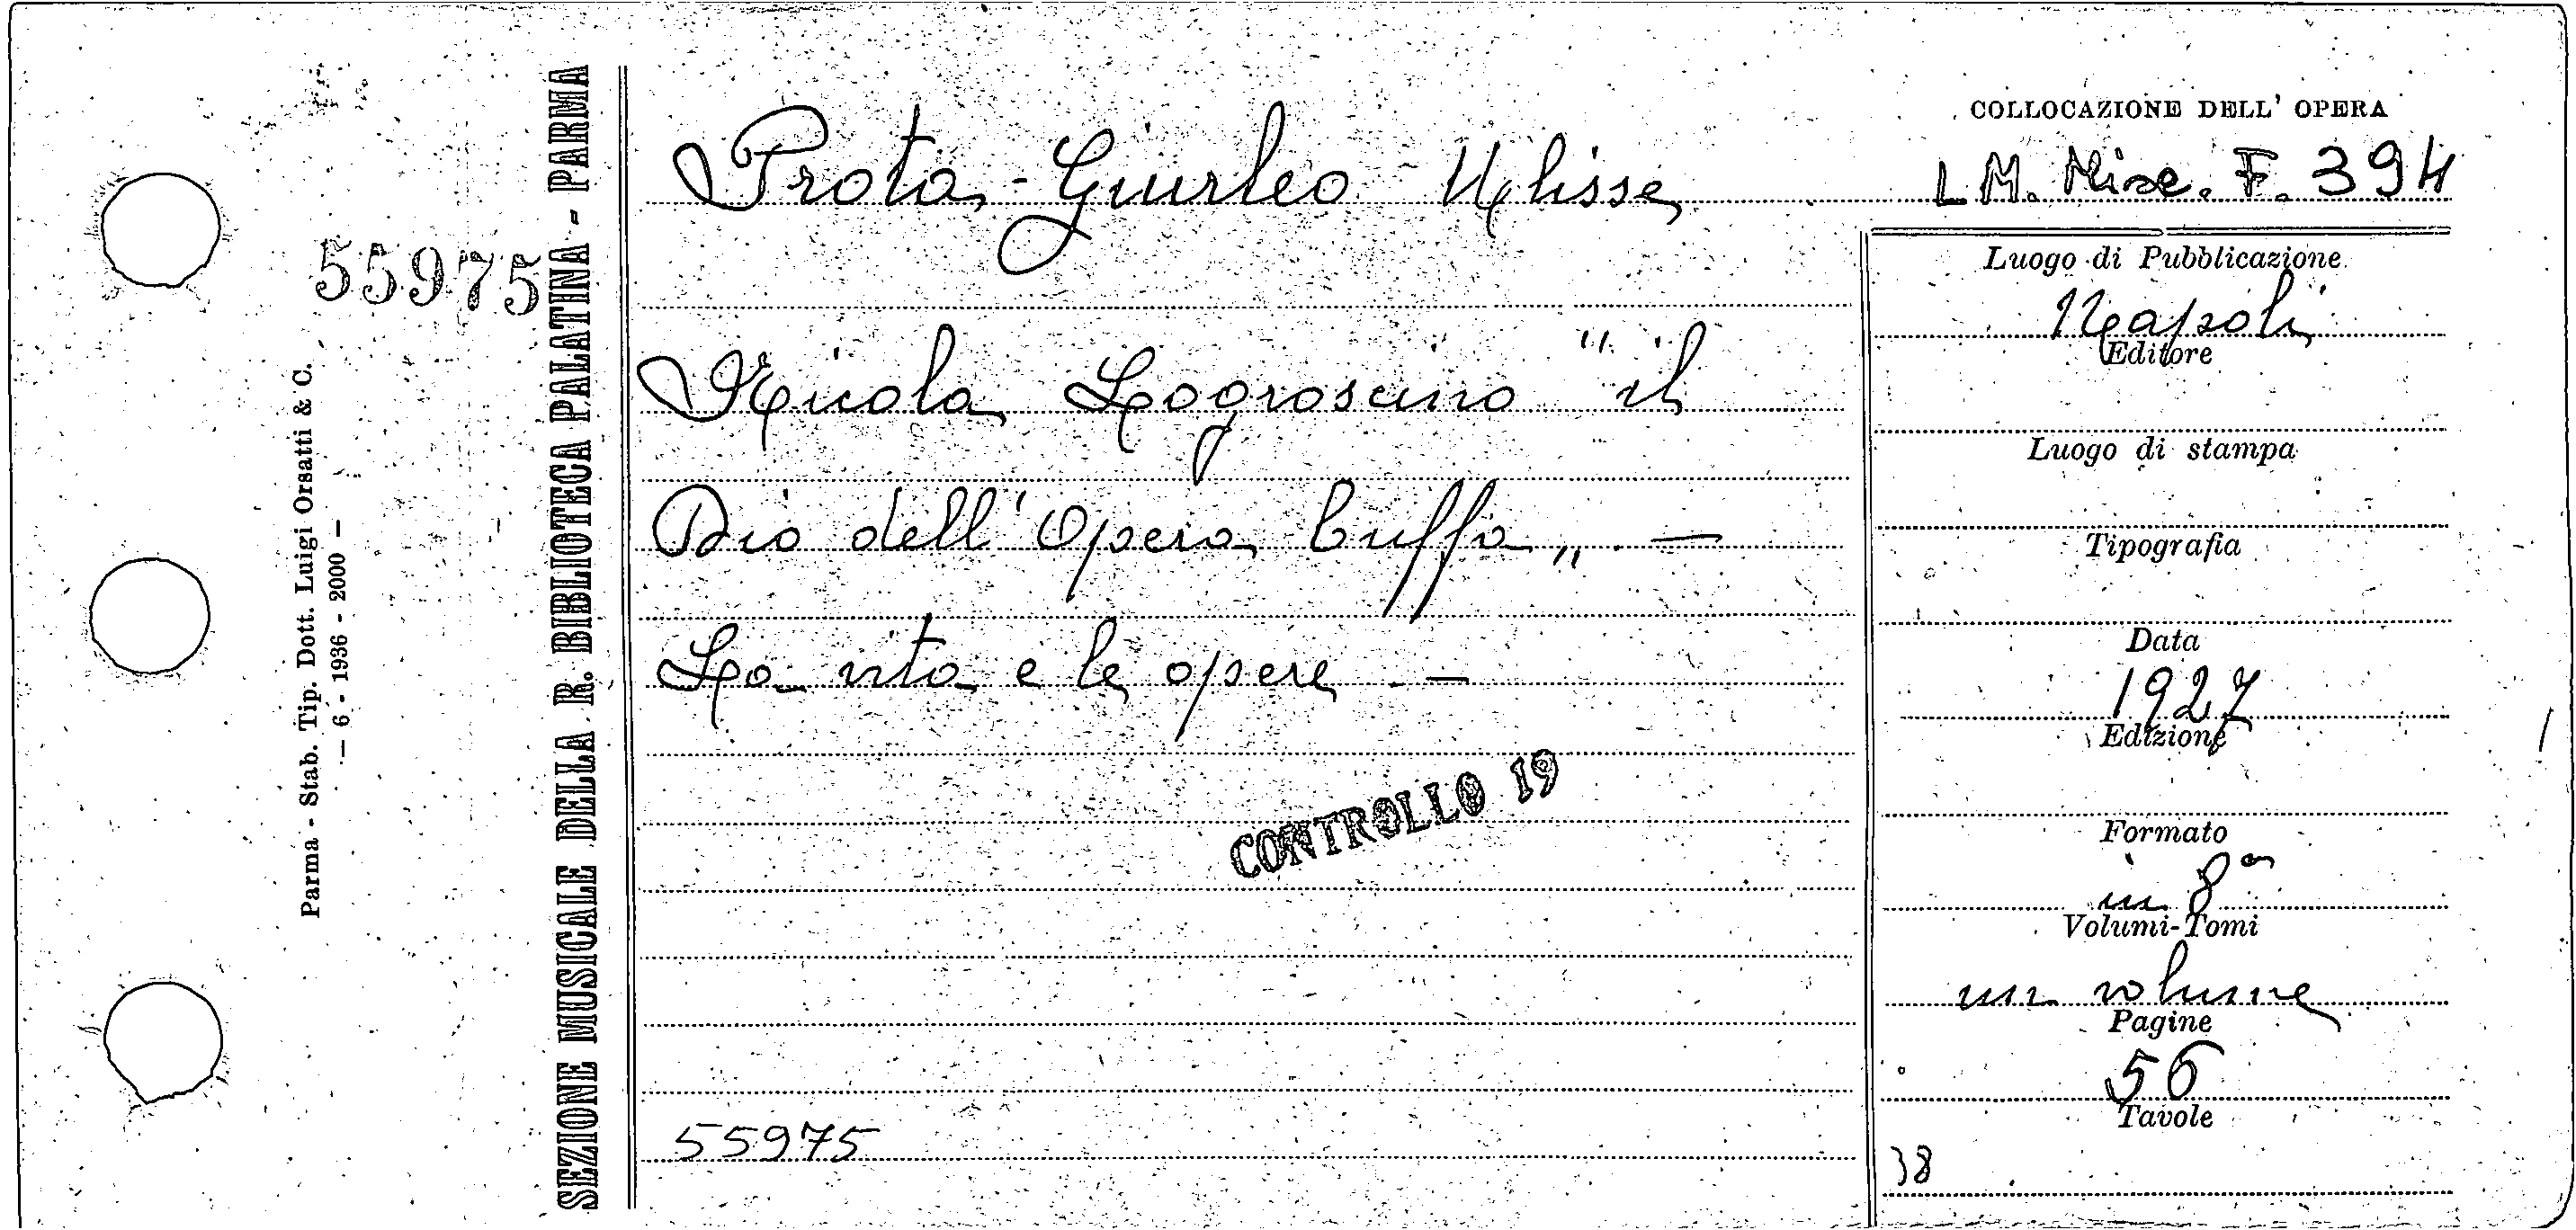 55975
Parma - Stab. Tip. Dott. Luigi Orsatti & C.
— 6 - 1936 - 2000 —
SEZIONE MUSICALE DELLA R. BIBLIOTECA PALATINA - PARMA
Prota-Giurleo Ulisse
Nicola Logroscino "il
Dio dell'Opera buffa„. —
La vita e le opere. —
CONTROLLO 19
55975
COLLOCAZIONE DELL' OPERA
L M. Misc. F. 394
Luogo di Pubblicazione
Napoli
Editore
Luogo di stampa
Tipografia
Data
1927
Edizione
Formato
in 8°
Volumi-Tomi
un volume
Pagine
56
Tavole
38